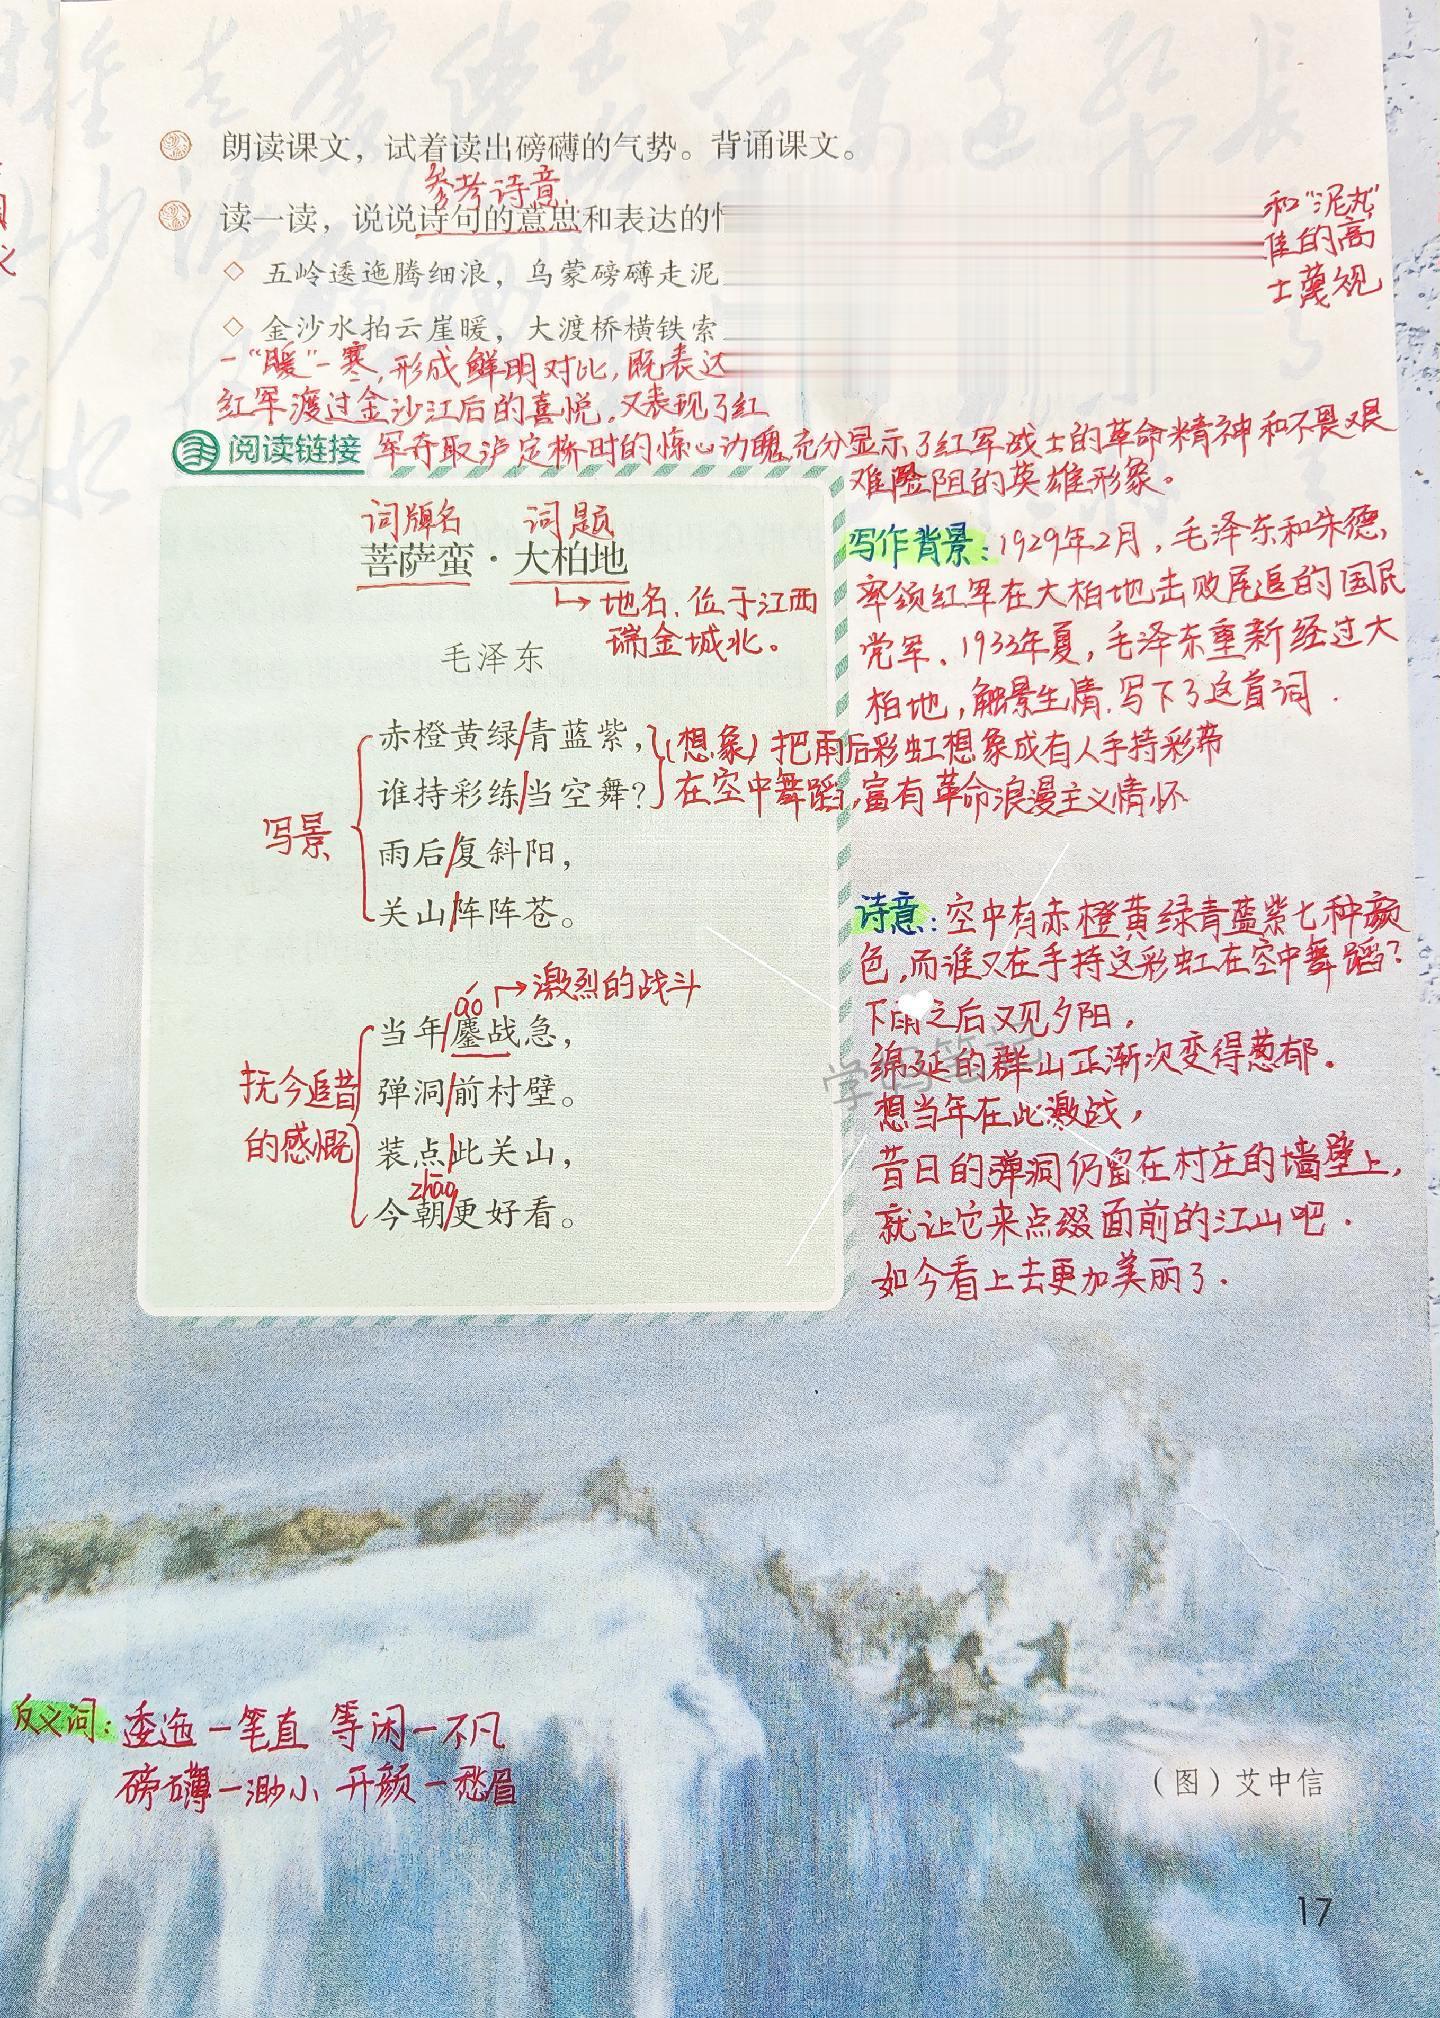 朗读课文，试着读出磅礴的气势。背诵课文。
参考诗意
读一读，说说诗句的意思和表达的
和“泥丸”
佳的高
士蔑视
五岭逶迤腾细浪，乌蒙磅礴走泥
金沙水拍云崖暖，大渡桥横铁索
一“暖”一寒，形成鲜明对比，既表达
红军渡过金沙江后的喜悦，又表现了红
阅读链接
军夺取泸定桥时的惊心动魄充分显示了红军战士的革命精神和不畏艰
难险阻的英雄形象。
词牌名 词题
菩萨蛮·大柏地
地名，位于江西
瑞金城北。
毛泽东
写景
赤橙黄绿/青蓝紫，
谁持彩练/当空舞？
雨后/复斜阳，
关山/阵阵苍。
（想象）把雨后彩虹想象成有人手持彩带
在空中舞蹈，富有革命浪漫主义情怀
áo
激烈的战斗
抚今追昔
的感慨
当年/鏖战急，
弹洞/前村壁。
装点/此关山，
zhāo
今朝/更好看。
写作背景：1929年2月，毛泽东和朱德，
率领红军在大柏地击败尾追的国民
党军、1933年夏，毛泽东重新经过大
柏地，触景生情，写下了这首词．
诗意：空中有赤橙黄绿青蓝紫七种颜
色，而谁又在手持这彩虹在空中舞蹈？
下雨之后又见夕阳，
绵延的群山正渐次变得葱郁．
想当年在此激战，
昔日的弹洞仍留在村庄的墙壁上，
就让它来点缀面前的江山吧．
如今看上去更加美丽了．
反义词：逶迤—笔直 等闲—不凡
磅礴—渺小 开颜—愁眉
（图）艾中信
17